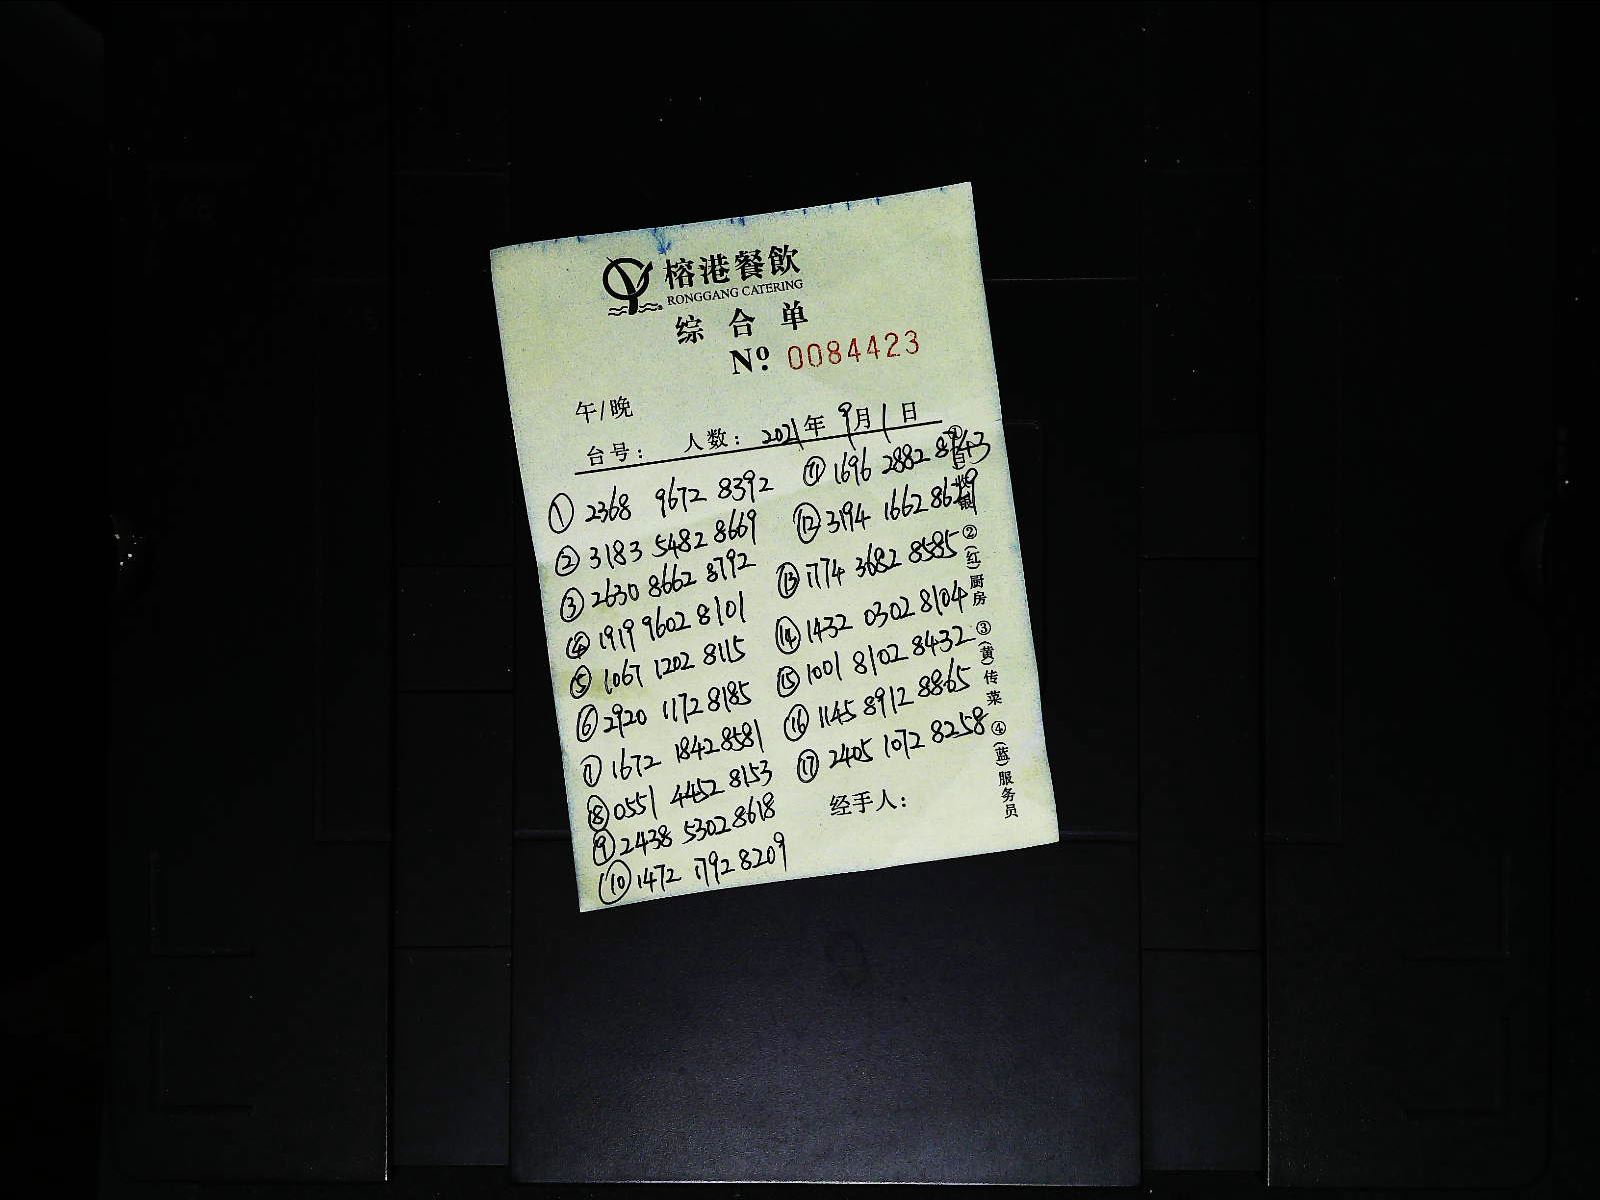 榕港餐飲
RONGGANG CATERING
综合单
Nº. 0084423
午/晚
台号： 人数：2021年9月1日
① 2368 9672 8392
② 3183 5482 8669
③ 2630 8662 8792
④ 1919 9602 8101
⑤ 1067 1202 8115
⑥ 2920 1172 8185
⑦ 1672 1842 8581
⑧ 0551 4452 8153
⑨ 2438 5302 8618
⑩ 1472 1792 8209
⑪ 1696 2882 8143
⑫ 3194 1662 8629
⑬ 1774 3682 8585
⑭ 1432 0302 8104
⑮ 1001 8102 8432
⑯ 1145 8912 8865
⑰ 2405 1072 8258
经手人：
②(红)厨房 ③(黄)传菜 ④(蓝)服务员